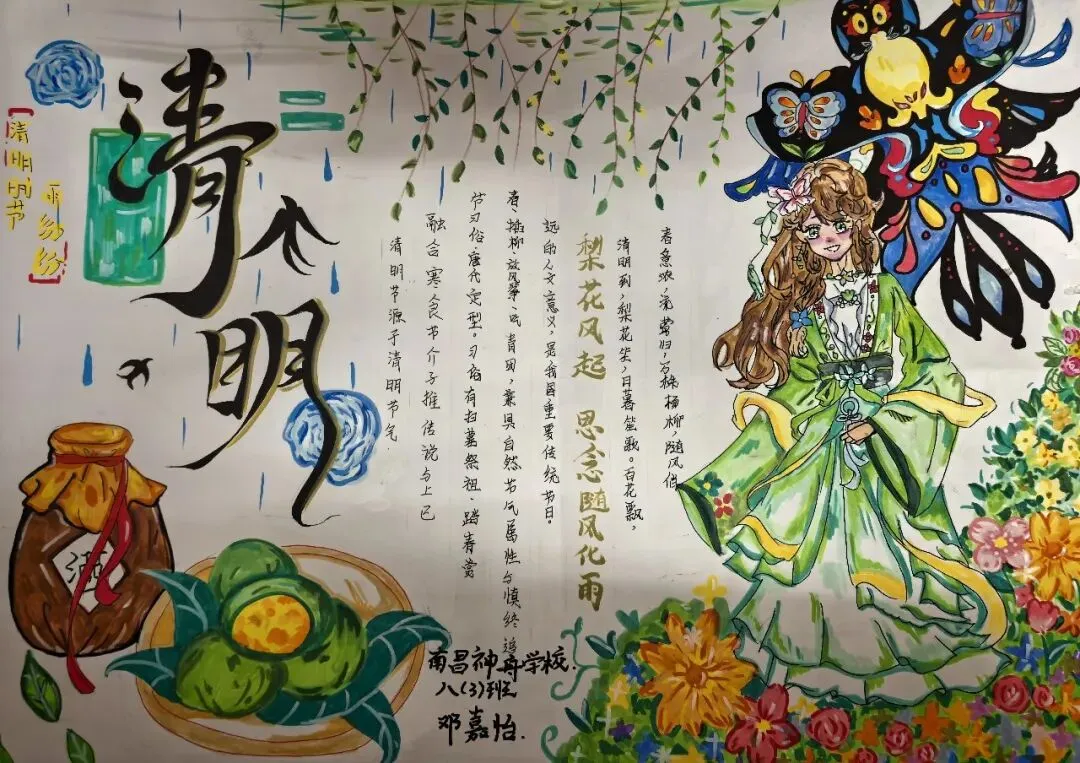 清明
清明时节
雨纷纷
清明节源于清明节气
融合寒食节介子推传说与上巳
节习俗,唐代定型。习俗有扫墓祭祖、踏春赏
春、插柳放风筝、吃青团,兼具自然节气属性与慎终追
远的人文意义,是我国重要传统节日。
梨花风起 思念随风化雨
清明到,梨花坐,日暮笙歌。百花飘,
春意浓,流莺归,万株杨柳,随风俏
酒
南昌神舟学校.
八(3)班
邓嘉怡.